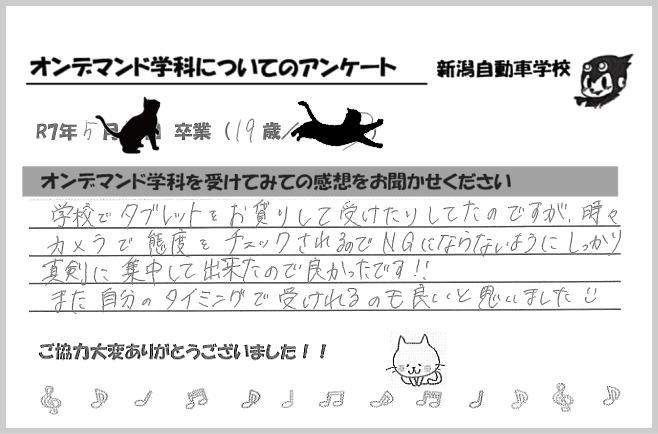 オンデマンド学科についてのアンケート 新潟自動車学校
R7年5月 卒業(19歳/
オンデマンド学科を受けてみての感想をお聞かせください
学校でタブレットをお貸りして受けたりしてたのですが、時々
カメラで態度をチェックされるのでNGにならないようにしっかり
真剣に集中して出来たので良かったです!!
また自分のタイミングで受けれるのも良いと思いました
ご協力大変ありがとうございました!!